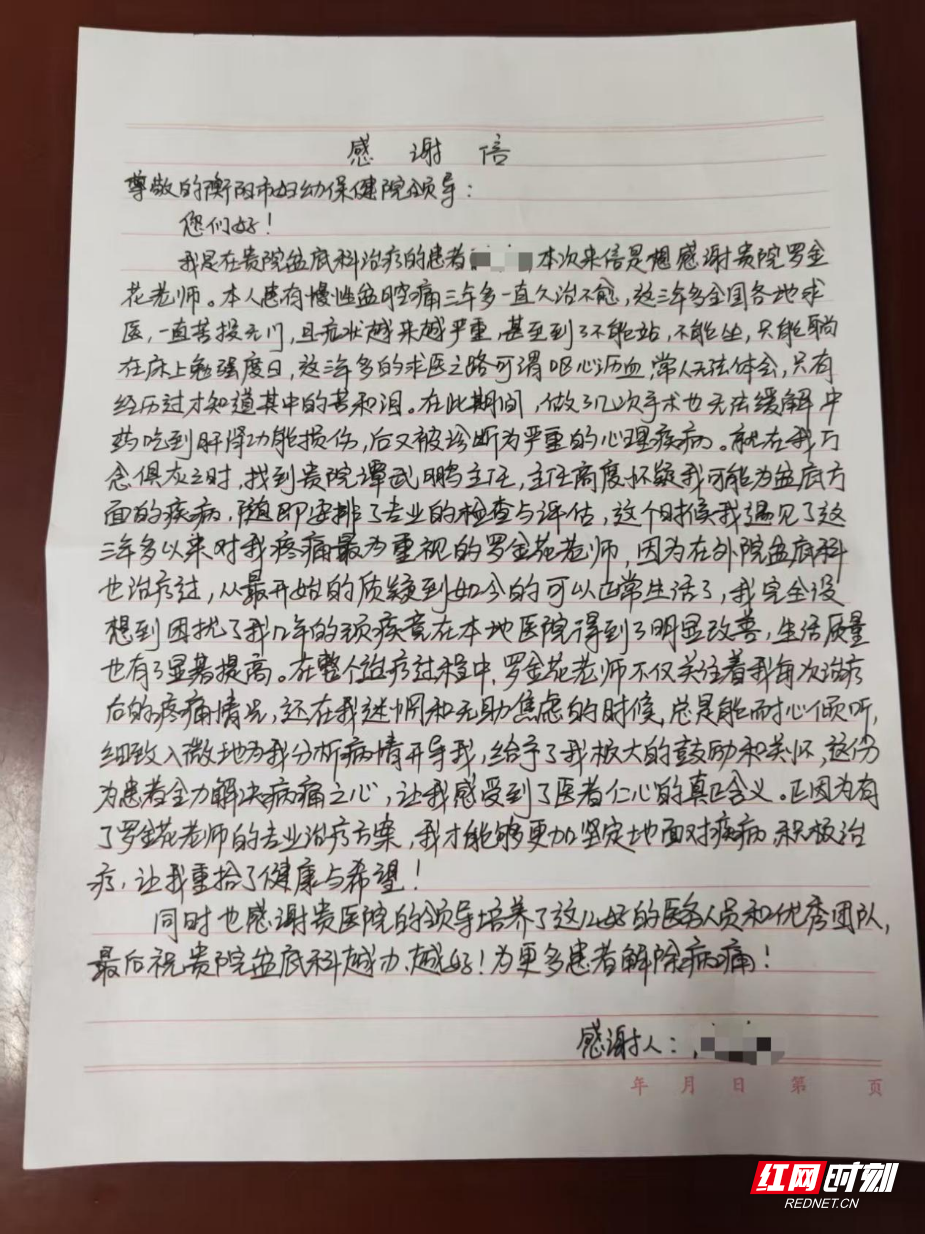 感谢信
尊敬的衡阳市妇幼保健院领导：
您们好！
我是在贵院盆底科治疗的患者 本次来信是想感谢贵院罗金
花老师。本人患有慢性盆腔痛三年多一直久治不愈，这三年多全国各地求
医，一直苦投无门，且症状越来越严重，甚至到了不能站，不能坐，只能躺
在床上勉强度日，这三年多的求医之路可谓呕心沥血，常人无法体会，只有
经历过才知道其中的苦和泪。在此期间，做了几次手术也无法缓解，中
药吃到肝肾功能损伤，后又被诊断为严重的心理疾病。就在我万
念俱灰之时，找到贵院谭武鹏主任，主任高度怀疑我可能为盆底方
面的疾病，随即安排了专业的检查与评估，这个时候我遇见了这
三年多以来对我疼痛最为重视的罗金花老师，因为在外院盆底科
也治疗过，从最开始的质疑到如今的可以正常生活了，我完全没
想到困扰了我几年的顽疾竟在本地医院得到了明显改善，生活质量
也有了显著提高。在整个治疗过程中，罗金花老师不仅关注着我每次治疗
后的疼痛情况，还在我迷惘和无助焦虑的时候，总是能耐心倾听，
细致入微地为我分析病情开导我，给予了我极大的鼓励和关怀，这份
为患者全力解决病痛之心，让我感受到了医者仁心的真正含义。正因为有
了罗金花老师的专业治疗方案，我才能够更加坚定地面对疾病，积极治
疗，让我重拾了健康与希望！
同时也感谢贵医院的领导培养了这么好的医务人员和优秀团队，
最后祝贵院盆底科越办越好！为更多患者解除病痛！
感谢人：
年 月 日 第 页
红网时刻
REDNET.CN